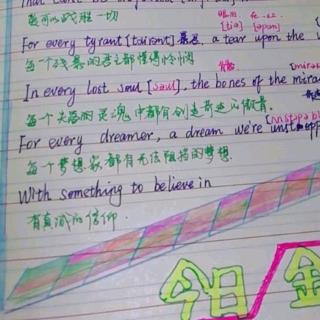 就可以战胜一切
For every tyrant [tairənt] 暴君, a tear upon the
每个残暴的君主都懂得怜悯
In every lost soul [səul], the bones of the mira
每个失落的灵魂中都有创造奇迹的傲骨
For every dreamer, a dream we're unstopp
每个梦想家都有无法阻挡的梦想.
With something to believe in
有真诚的信仰.
今日
金